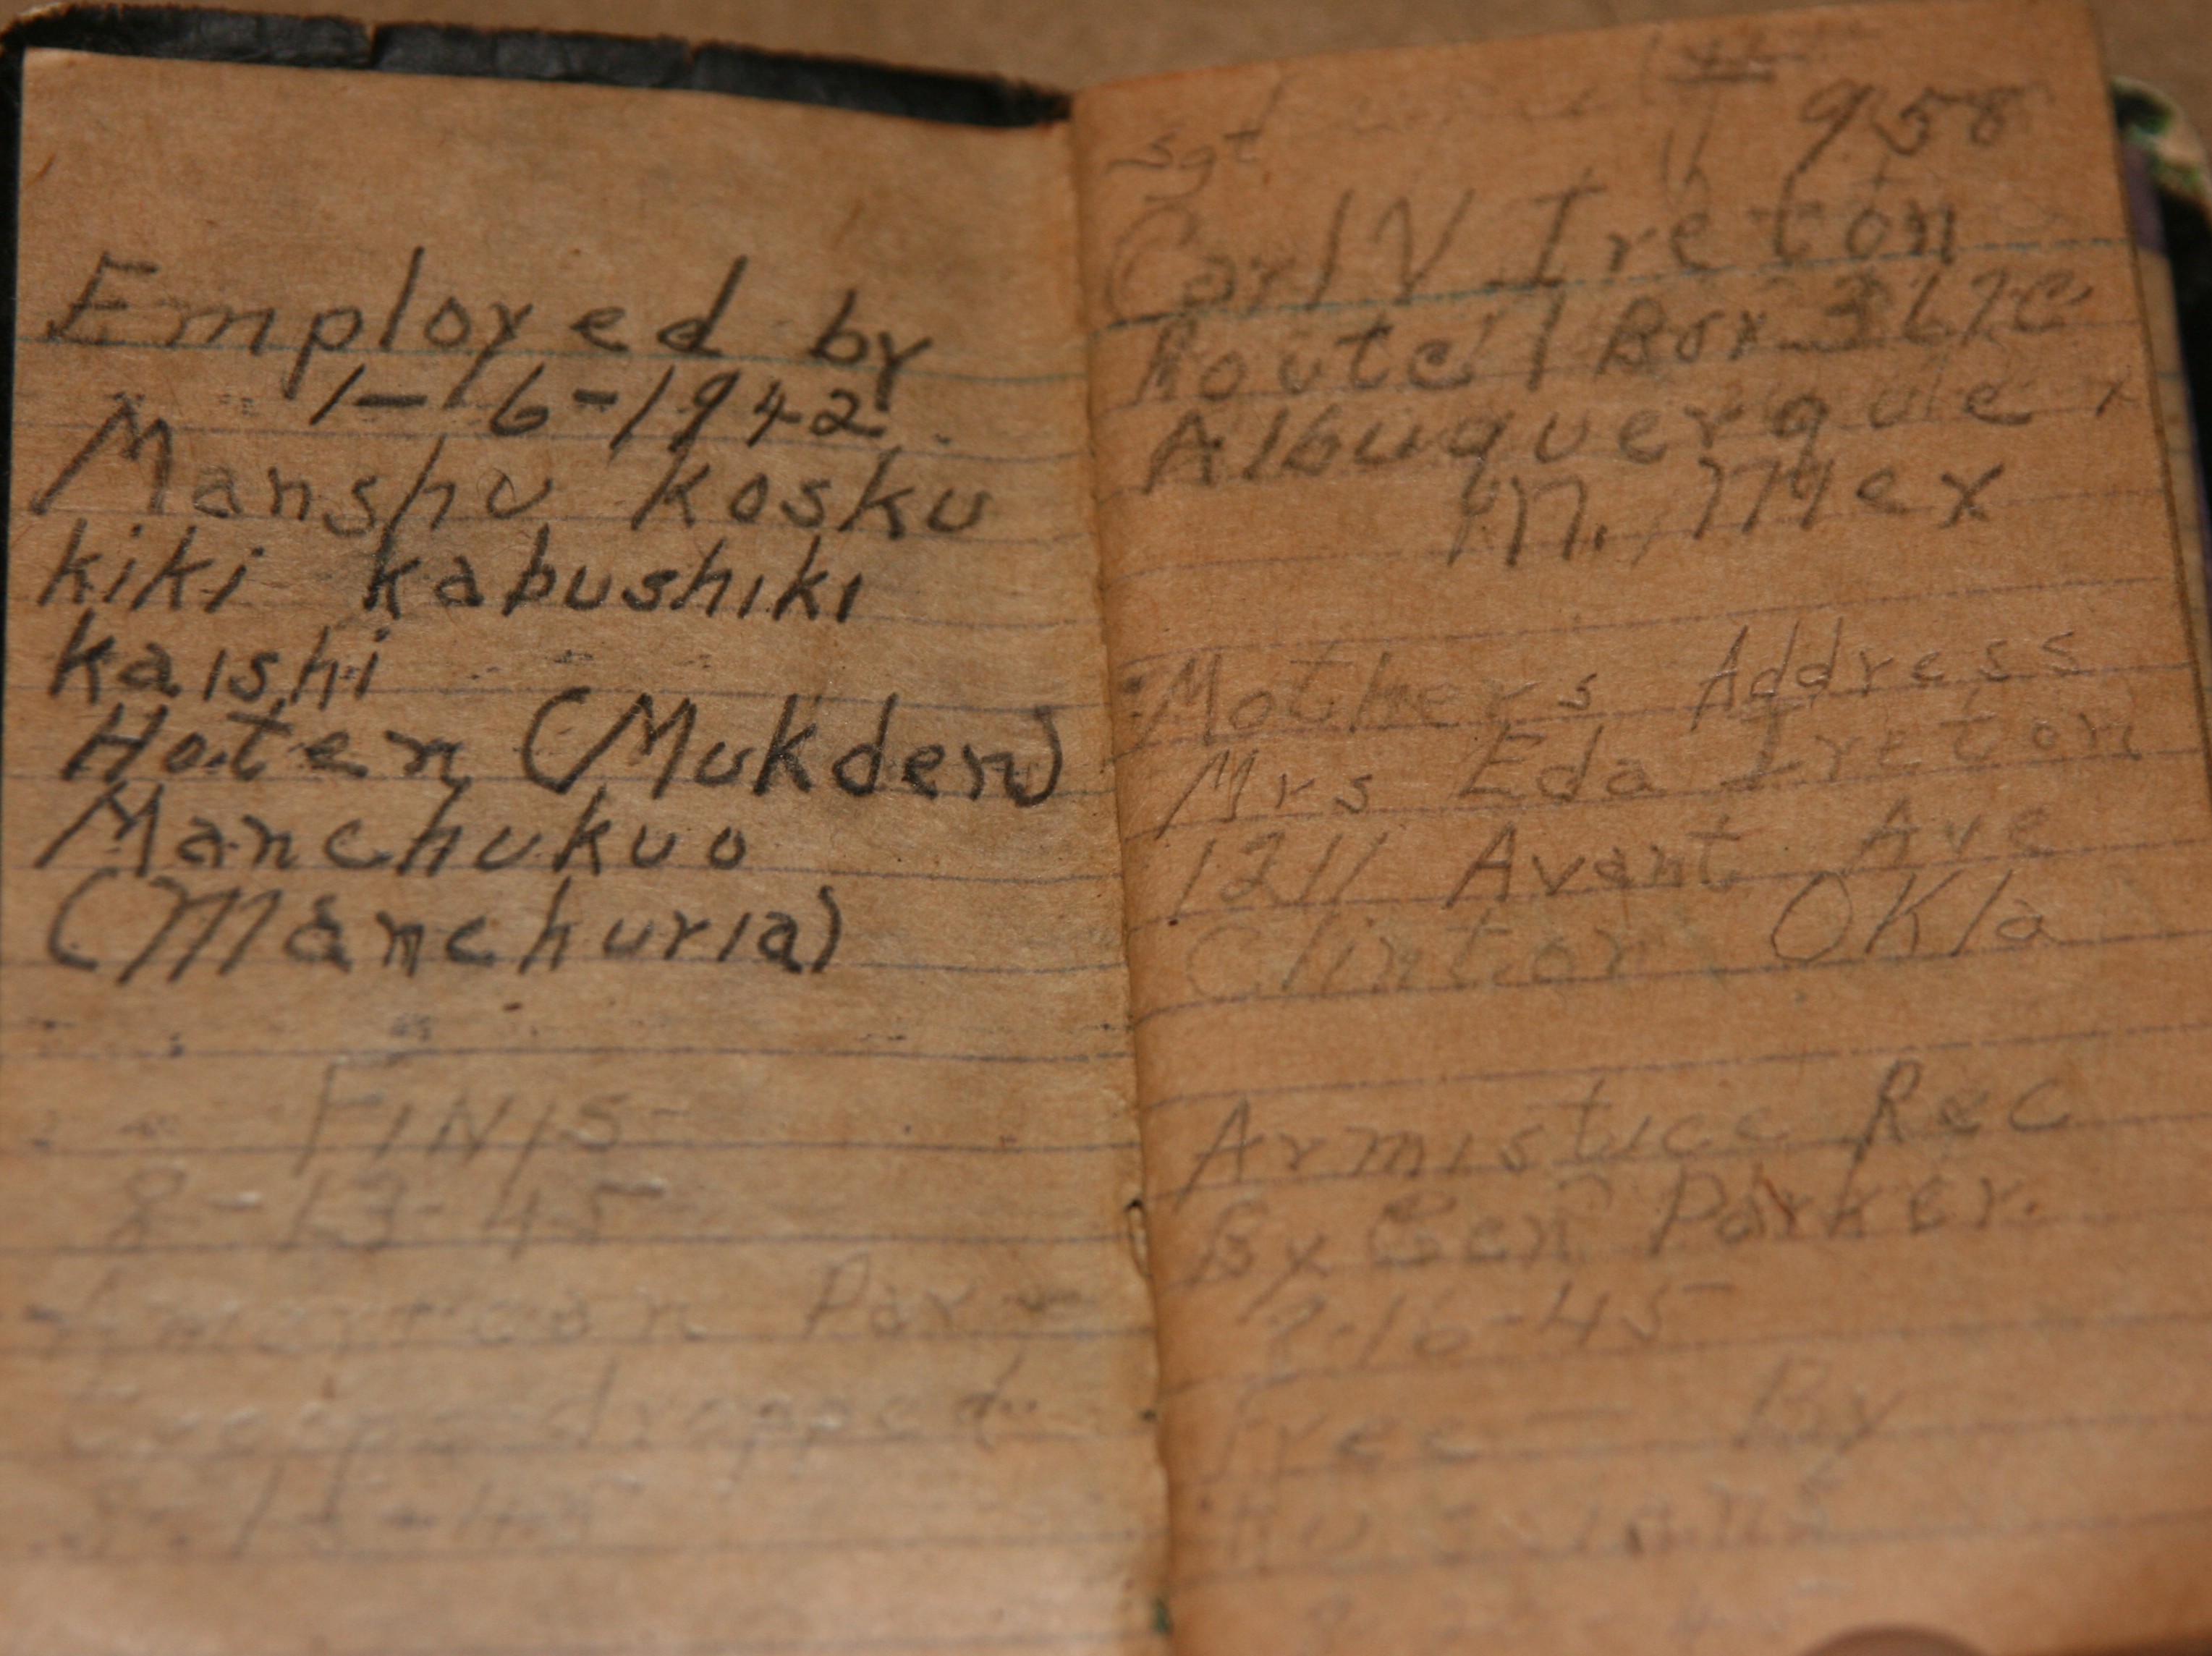 Employed by
1-16-1942
Manshu kosku
kiki kabushiki
kaishi
Hoten (Mukden)
Manchukuo
(Manchuria)
FINIS
8-13-45
American Para
dropped
958
Sgt
Carl V Ireton
Route 1 Box
Albuquerque
N. Mex
Mothers Address
Mrs Eda Ireton
1211 Avant Ave
Clinton Okla
Armistice Rec
By Gen Parker.
8-16-45
Free — By
Russians